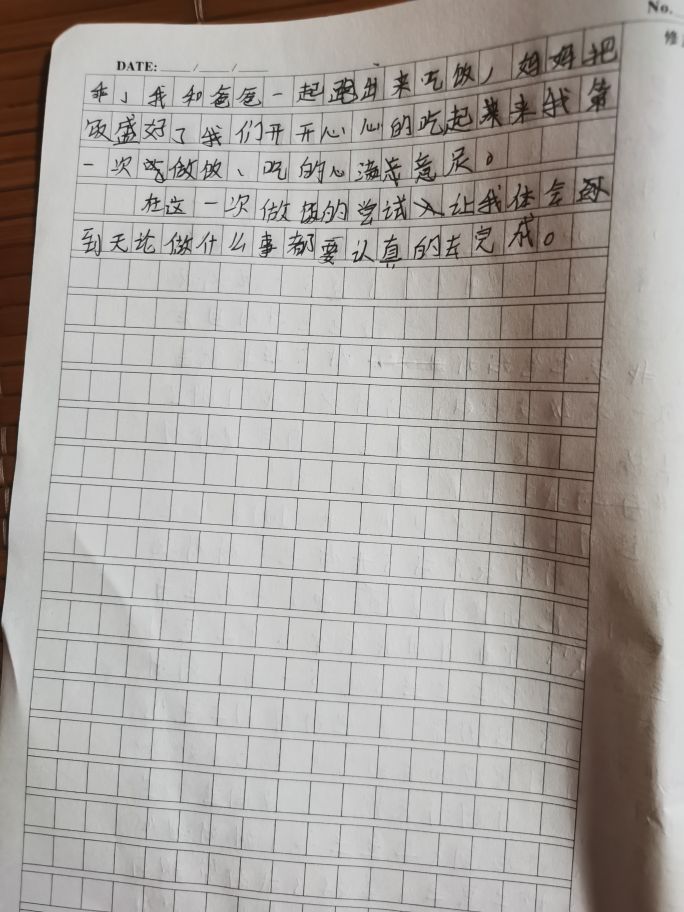 No.
DATE: / /
乖」我和爸爸一起跑出来吃饭,妈妈把
饭盛好了我们开开心心的吃起来我第
一次做饭、吃的心满意足。
在这一次做饭的尝试入让我体会到
到无论做什么事都要认真的去完成。